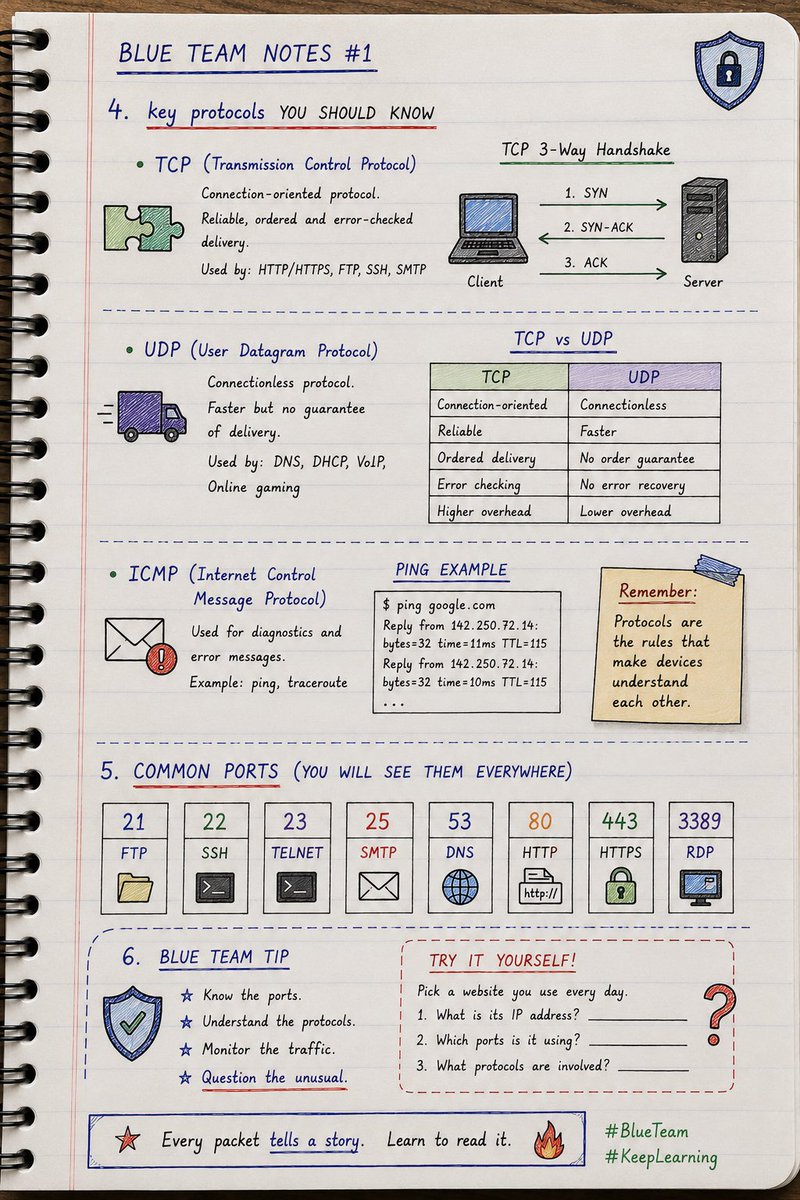 BLUE TEAM NOTES #1
4. key protocols YOU SHOULD KNOW
• TCP (Transmission Control Protocol)
Connection-oriented protocol.
Reliable, ordered and error-checked
delivery.
Used by: HTTP/HTTPS, FTP, SSH, SMTP
TCP 3-Way Handshake
1. SYN
2. SYN-ACK
3. ACK
Client
Server
• UDP (User Datagram Protocol)
Connectionless protocol.
Faster but no guarantee
of delivery.
Used by: DNS, DHCP, VoIP,
Online gaming
TCP vs UDP
TCP UDP
Connection-oriented Connectionless
Reliable Faster
Ordered delivery No order guarantee
Error checking No error recovery
Higher overhead Lower overhead
• ICMP (Internet Control
Message Protocol)
Used for diagnostics and
error messages.
Example: ping, traceroute
PING EXAMPLE
$ ping google.com
Reply from 142.250.72.14:
bytes=32 time=11ms TTL=115
Reply from 142.250.72.14:
bytes=32 time=10ms TTL=115
...
Remember:
Protocols are
the rules that
make devices
understand
each other.
5. COMMON PORTS (YOU WILL SEE THEM EVERYWHERE)
21 22 23 25 53 80 443 3389
FTP SSH TELNET SMTP DNS HTTP HTTPS RDP
>_ >_ http://
6. BLUE TEAM TIP
☆ Know the ports.
☆ Understand the protocols.
☆ Monitor the traffic.
☆ Question the unusual.
TRY IT YOURSELF!
Pick a website you use every day.
1. What is its IP address? ____________
2. Which ports is it using? ____________
3. What protocols are involved? ________
?
Every packet tells a story. Learn to read it.
#BlueTeam
#KeepLearning